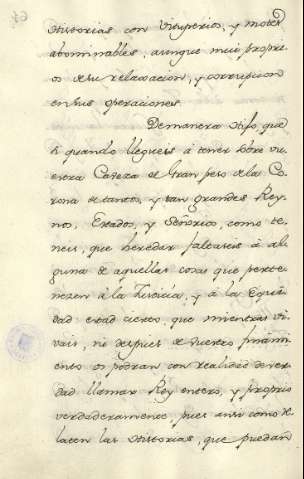 Historias con Vituperios, y motes
abominables, aunque mui propri-
os de su relaxacion, y corrupcion
en sus operaciones.
Demanera Hijo, que
si quando llegueis à tener sobre vu
estra Cabeza el gran peso de la Co
rona de tantos, y tan grandes Rey
nos, Estados, y Señorios, como te
neis, que heredar faltaseis à al
guna de aquellas cosas que perte
nezen à la Justicia, y à la Equi
dad estad cierto, que mientras vi
vais, ni despues de vuestro finami
ento os podran con realidad de ver
dad llamar Rey entero, y proprio
verdaderamente pues ansi como se
lacen las Historias, que puedan